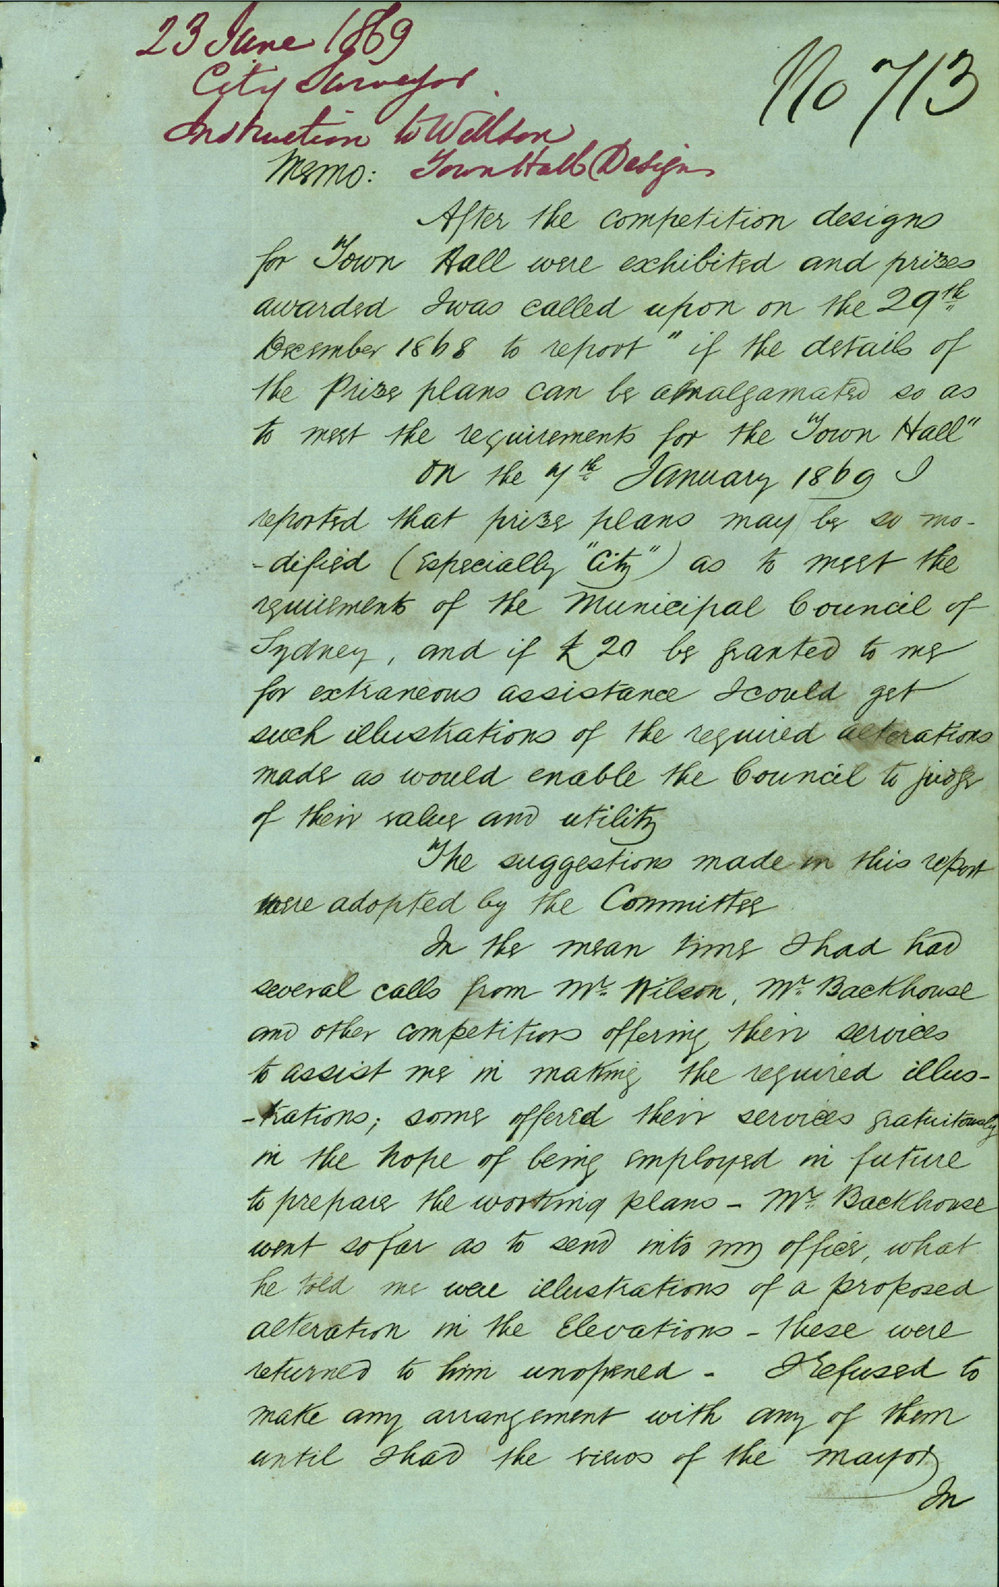 23 June 1869
City Surveyor.
Instruction to Willson
No 713
Memo: Town Hall Designs
After the competition designs
for Town Hall were exhibited and prizes
awarded I was called upon on the 29th
December 1868 to report "if the details of
the Prize plans can be amalgamated so as
to meet the requirements for the Town Hall"
On the 7th January 1869 I
reported that prize plans may be so mo-
-dified (especially "City") as to meet the
requirements of the Municipal Council of
Sydney, and if £20 be granted to me
for extraneous assistance I could get
such illustrations of the required alterations
made as would enable the Council to judge
of their value and utility
The suggestions made in this report
were adopted by the Committee
In the mean time I had had
several calls from Mr. Wilson, Mr. Backhouse
and other competitors offering their services
to assist me in making the required illus-
-trations; some offered their services gratuitously
in the hope of being employed in future
to prepare the working plans - Mr. Backhouse
went so far as to send into my office, what
he told me were illustrations of a proposed
alteration in the Elevations - these were
returned to him unopened - I refused to
make any arrangement with any of them
until I had the views of the Mayor
In